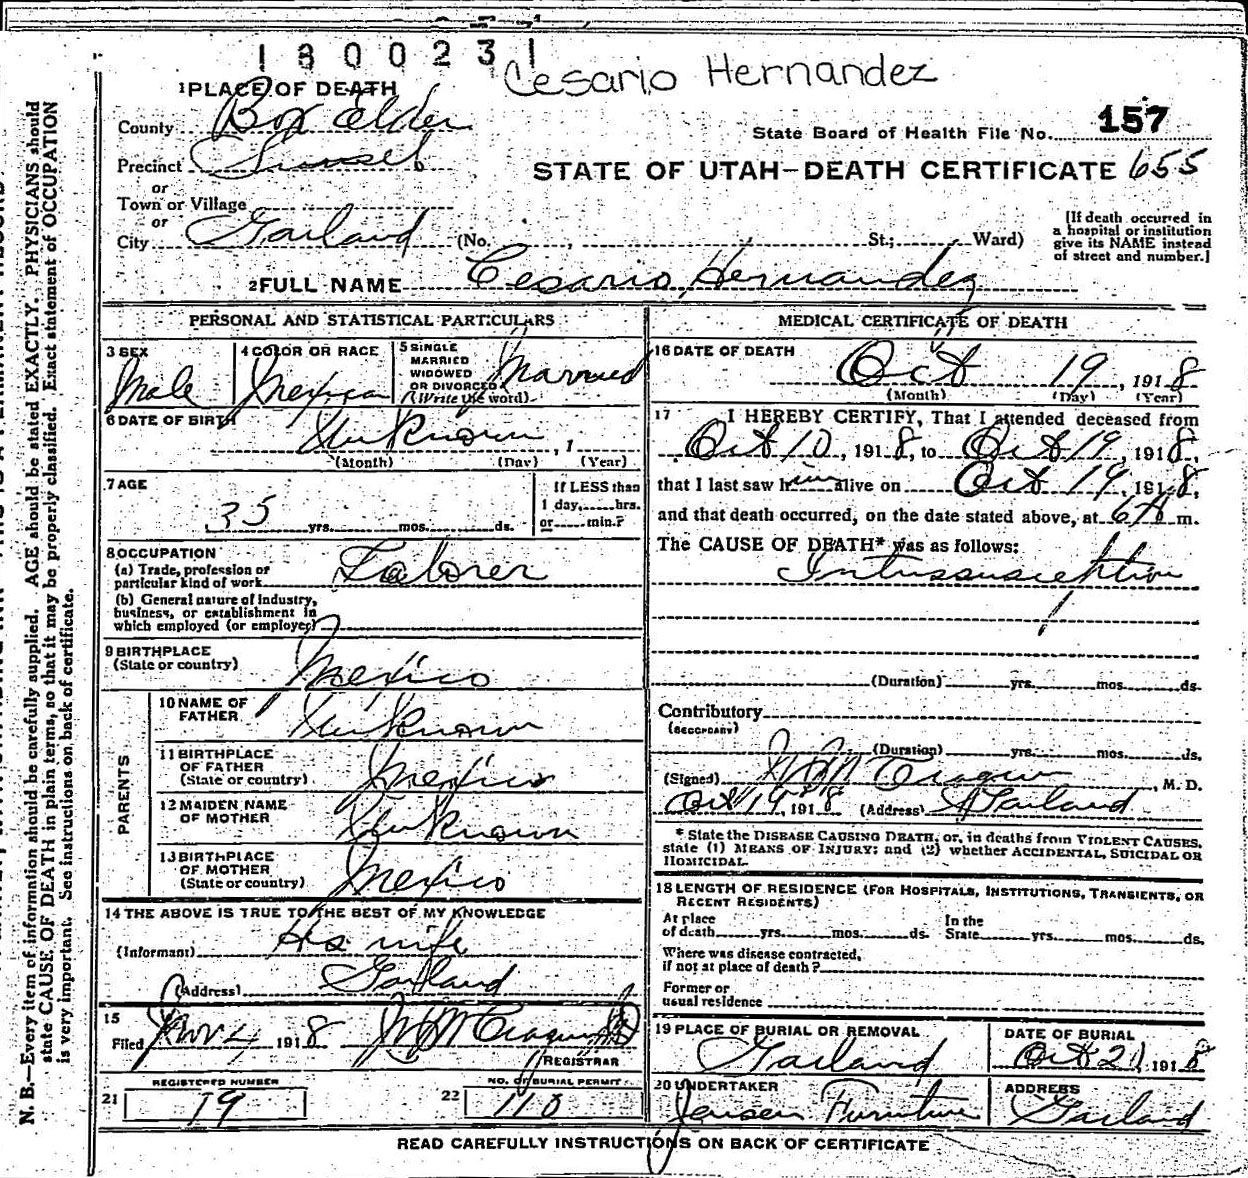 1800231
Cesario Hernandez
1 PLACE OF DEATH
County Box Elder
State Board of Health File No. 157
Precinct Sunset
STATE OF UTAH—DEATH CERTIFICATE 655
or
Town or Village
or
City Garland (No. , St.; Ward)
[If death occurred in a hospital or institution give its NAME instead of street and number.]
2 FULL NAME Cesario Hernandez
PERSONAL AND STATISTICAL PARTICULARS
3 SEX Male
4 COLOR OR RACE Mexican
5 SINGLE MARRIED WIDOWED OR DIVORCED (Write the word) Married
6 DATE OF BIRTH Unknown , 1
(Month) (Day) (Year)
7 AGE
35 yrs. mos. ds.
If LESS than 1 day, hrs. or min.?
8 OCCUPATION
(a) Trade, profession or particular kind of work Laborer
(b) General nature of industry, business, or establishment in which employed (or employer)
9 BIRTHPLACE
(State or country) Mexico
PARENTS
10 NAME OF FATHER Unknown
11 BIRTHPLACE OF FATHER (State or country) Mexico
12 MAIDEN NAME OF MOTHER Unknown
13 BIRTHPLACE OF MOTHER (State or country) Mexico
14 THE ABOVE IS TRUE TO THE BEST OF MY KNOWLEDGE
(Informant) His wife
(Address) Garland
15
Filed Nov 4 1918
REGISTRAR
REGISTERED NUMBER
21 19
NO. OF BURIAL PERMIT
22 110
MEDICAL CERTIFICATE OF DEATH
16 DATE OF DEATH
Oct 19, 1918
(Month) (Day) (Year)
17 I HEREBY CERTIFY, That I attended deceased from
Oct 10, 1918, to Oct 19, 1918,
that I last saw him alive on Oct 19, 1918,
and that death occurred, on the date stated above, at 6 A m.
The CAUSE OF DEATH* was as follows:
Intussusception
(Duration) yrs. mos. ds.
Contributory
(SECONDARY)
(Duration) yrs. mos. ds.
(Signed) , M. D.
Oct 19, 1918 (Address) Garland
* State the DISEASE CAUSING DEATH, or, in deaths from VIOLENT CAUSES,
state (1) MEANS OF INJURY; and (2) whether ACCIDENTAL, SUICIDAL OR
HOMICIDAL.
18 LENGTH OF RESIDENCE (FOR HOSPITALS, INSTITUTIONS, TRANSIENTS, OR
RECENT RESIDENTS)
At place of death yrs. mos. ds. In the State yrs. mos. ds.
Where was disease contracted,
if not at place of death?
Former or
usual residence
19 PLACE OF BURIAL OR REMOVAL
Garland
DATE OF BURIAL
Oct 21, 1918
20 UNDERTAKER
Jensen Furniture
ADDRESS
Garland
READ CAREFULLY INSTRUCTIONS ON BACK OF CERTIFICATE
N. B.—Every item of information should be carefully supplied. AGE should be stated EXACTLY. PHYSICIANS should
state CAUSE OF DEATH in plain terms, so that it may be properly classified. Exact statement of OCCUPATION
is very important. See instructions on back of certificate.